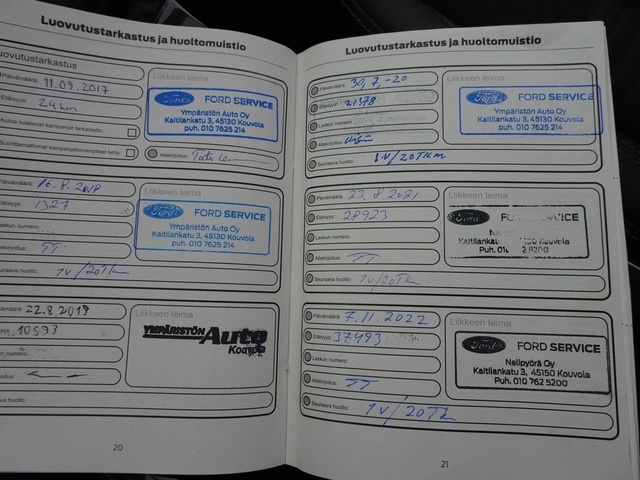 Luovutustarkastus ja huoltomuistio
Luovutustarkastus
Päivämäärä: 11.09.2017
Etäisyys: 24 km
Autoa koskevat kampanjat tarkastettu:
Suorittamattomat kampanjatoimenpiteet tehty:
Liikkeen leima
Ford FORD SERVICE
Ympäristön Auto Oy
Kaitilankatu 3, 45130 Kouvola
puh. 010 7625 214
Allekirjoitus:
Päivämäärä: 10.8.2018
Etäisyys: 1327
Laskun numero:
Allekirjoitus: TT
Seuraava huolto: 1v/20Tk
Liikkeen leima
Ford FORD SERVICE
Ympäristön Auto Oy
Kaitilankatu 3, 45130 Kouvola
puh. 010 7625 214
Päivämäärä: 22.8.2019
Etäisyys: 10593
Laskun numero:
Allekirjoitus:
Seuraava huolto:
Liikkeen leima
YMPÄRISTÖN Auto
Kouvola
20
Luovutustarkastus ja huoltomuistio
Päivämäärä: 30,7,-20
Etäisyys: 21578
Laskun numero:
Allekirjoitus:
Seuraava huolto: 1V/20TKM
Liikkeen leima
Ford FORD SERVICE
Ympäristön Auto Oy
Kaitilankatu 3, 45130 Kouvola
puh. 010 7625 214
Päivämäärä: 23.8.2021
Etäisyys: 28923
Laskun numero:
Allekirjoitus: TT
Seuraava huolto: 1v/20Tk
Liikkeen leima
Ford SERVICE
Päivämäärä: 7.11.2022
Etäisyys: 37493
Laskun numero:
Allekirjoitus: TT
Seuraava huolto: 1v/20Tk
Liikkeen leima
Ford FORD SERVICE
Nelipyörä Oy
Kaitilankatu 3, 45150 Kouvola
Puh. 010 762 5200
21